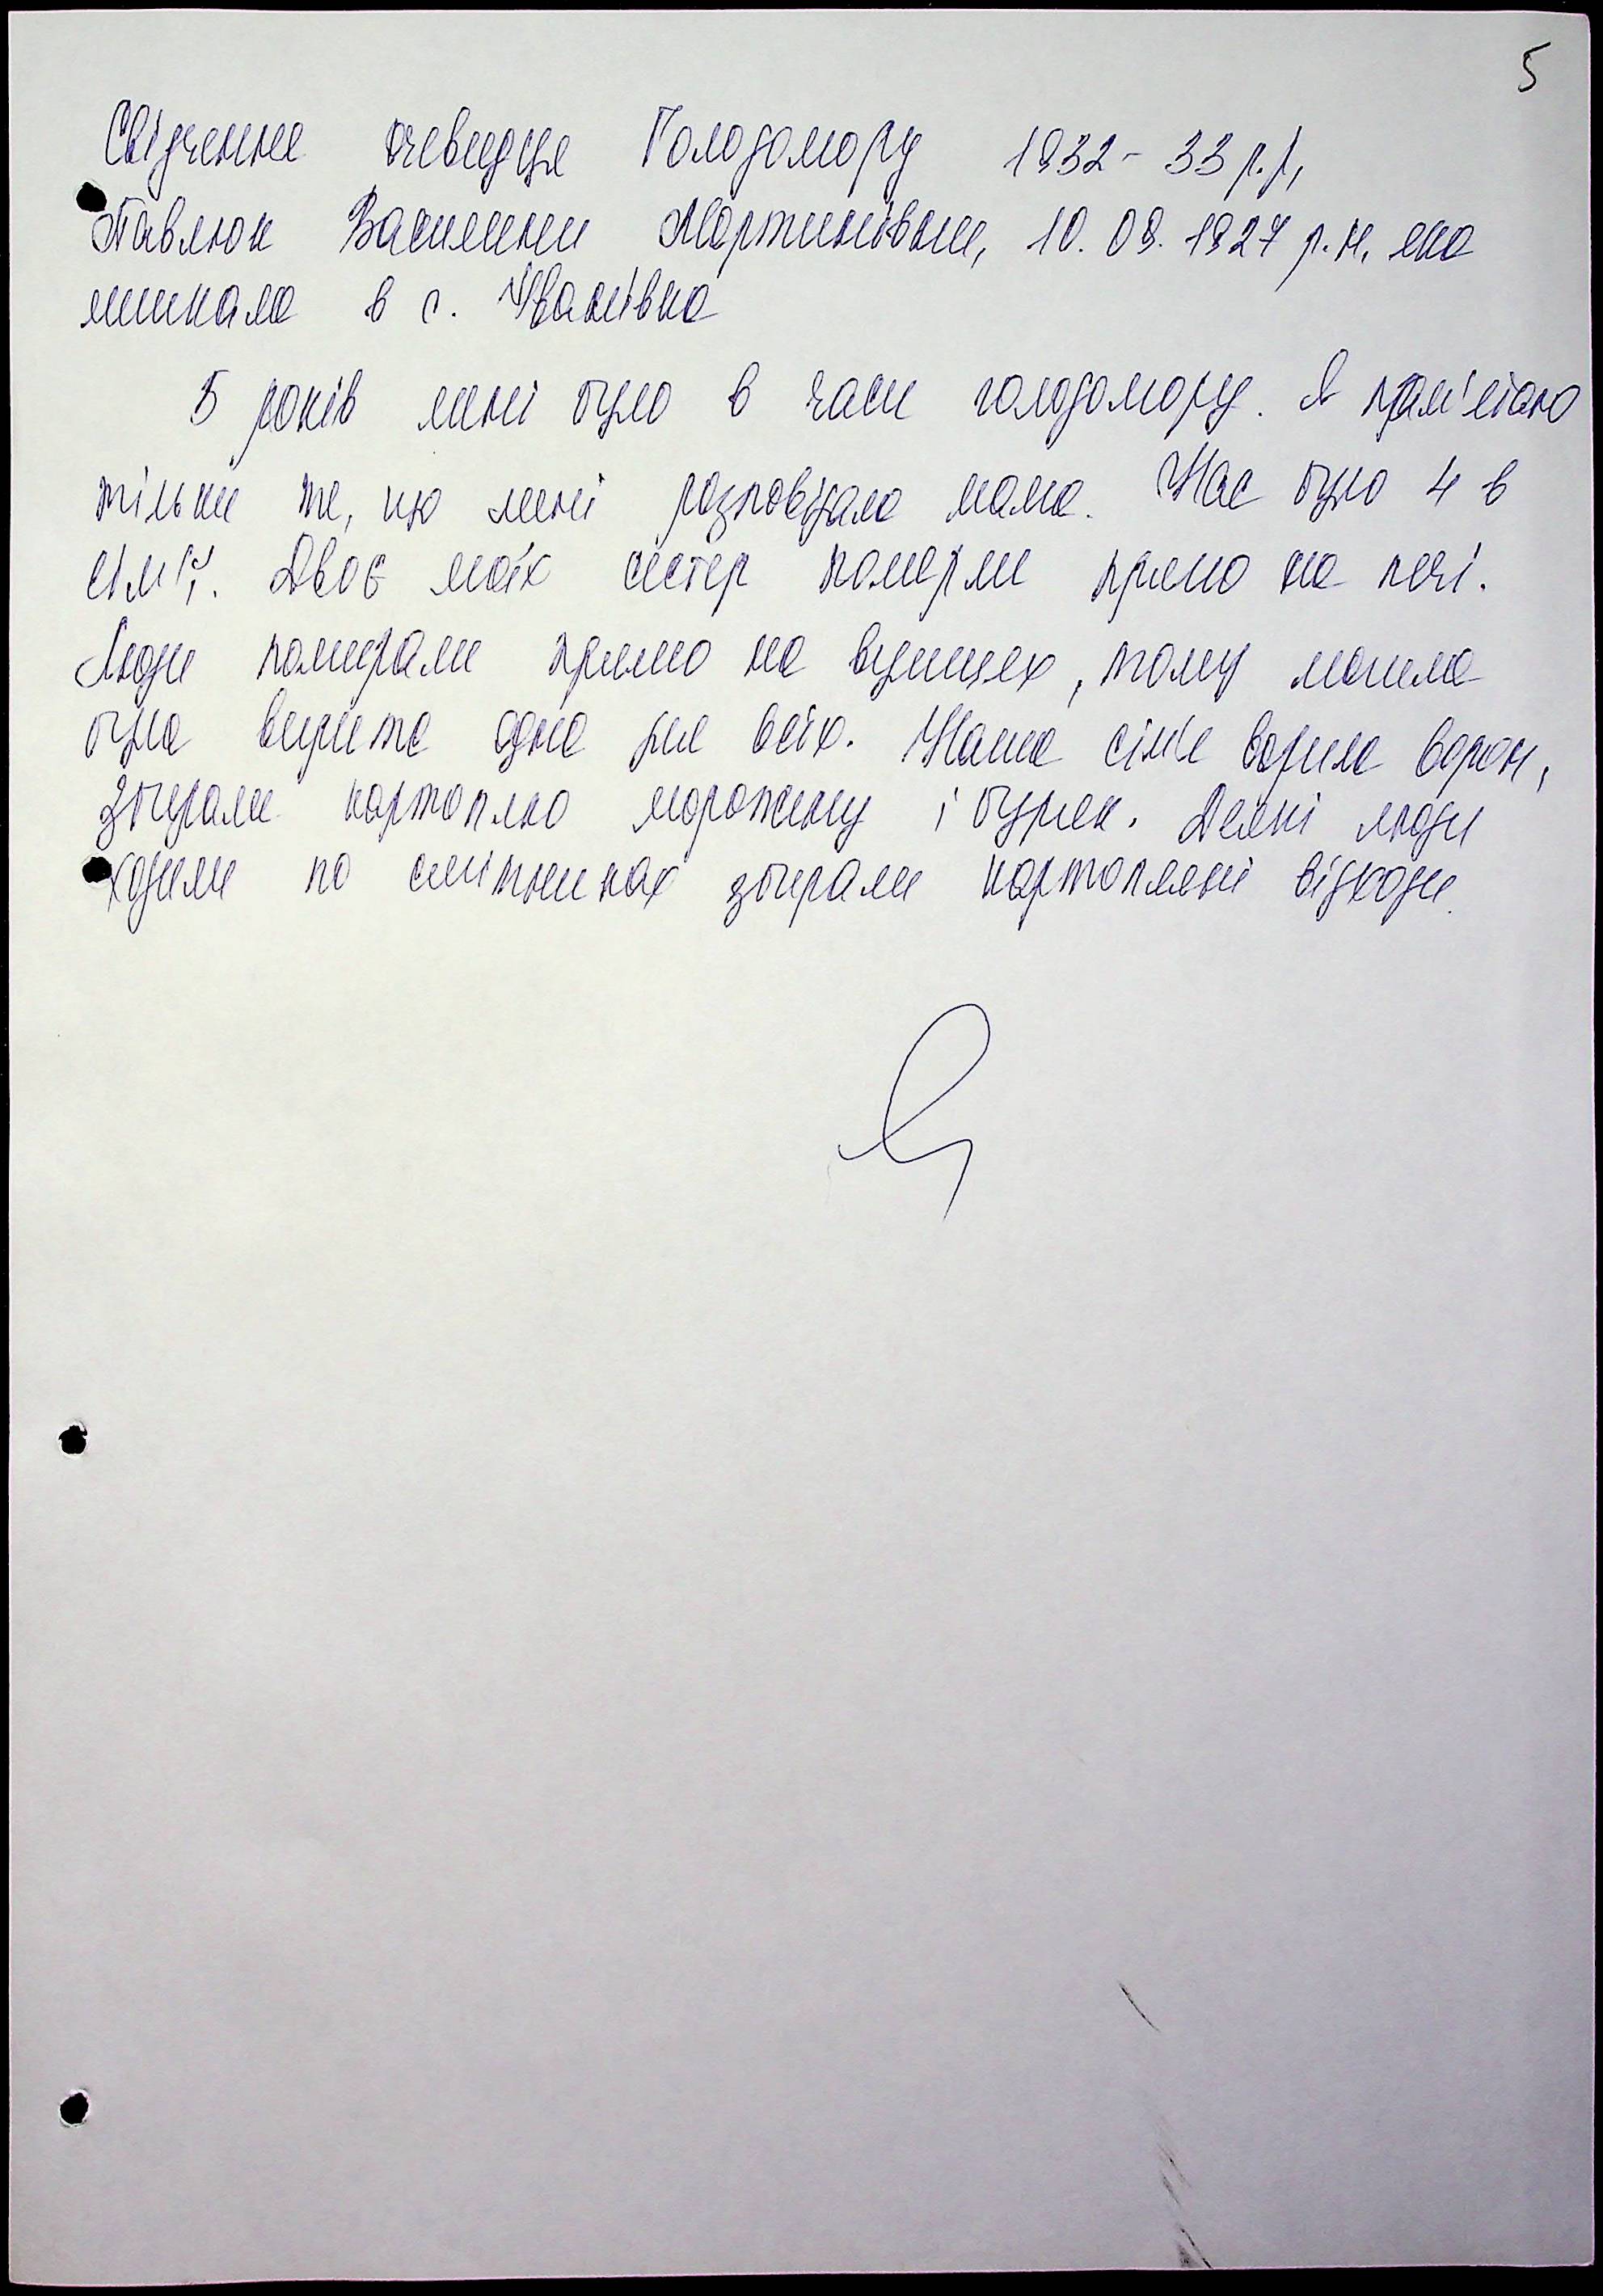 5
Свідчення очевидця Голодомору 1932-33 р.р,
Павлюк Василини Мартинівни, 10.09.1927 р.н. яка
мешкала в с. Іванівка
5 років мині було в часи голодомору. Я пам'ятаю
тільки те, що мині розповідала мама. Нас було 4 в
сім'ї. Двоє моїх сестер померли прямо на печі.
Люди помирали прямо на вулицях, тому могила
була вирита одна для всіх. Наша сім'я варила ворон,
збирали картоплю морожену і буряк. Деякі люди
ходили по смітниках збирали картопляні відходи.